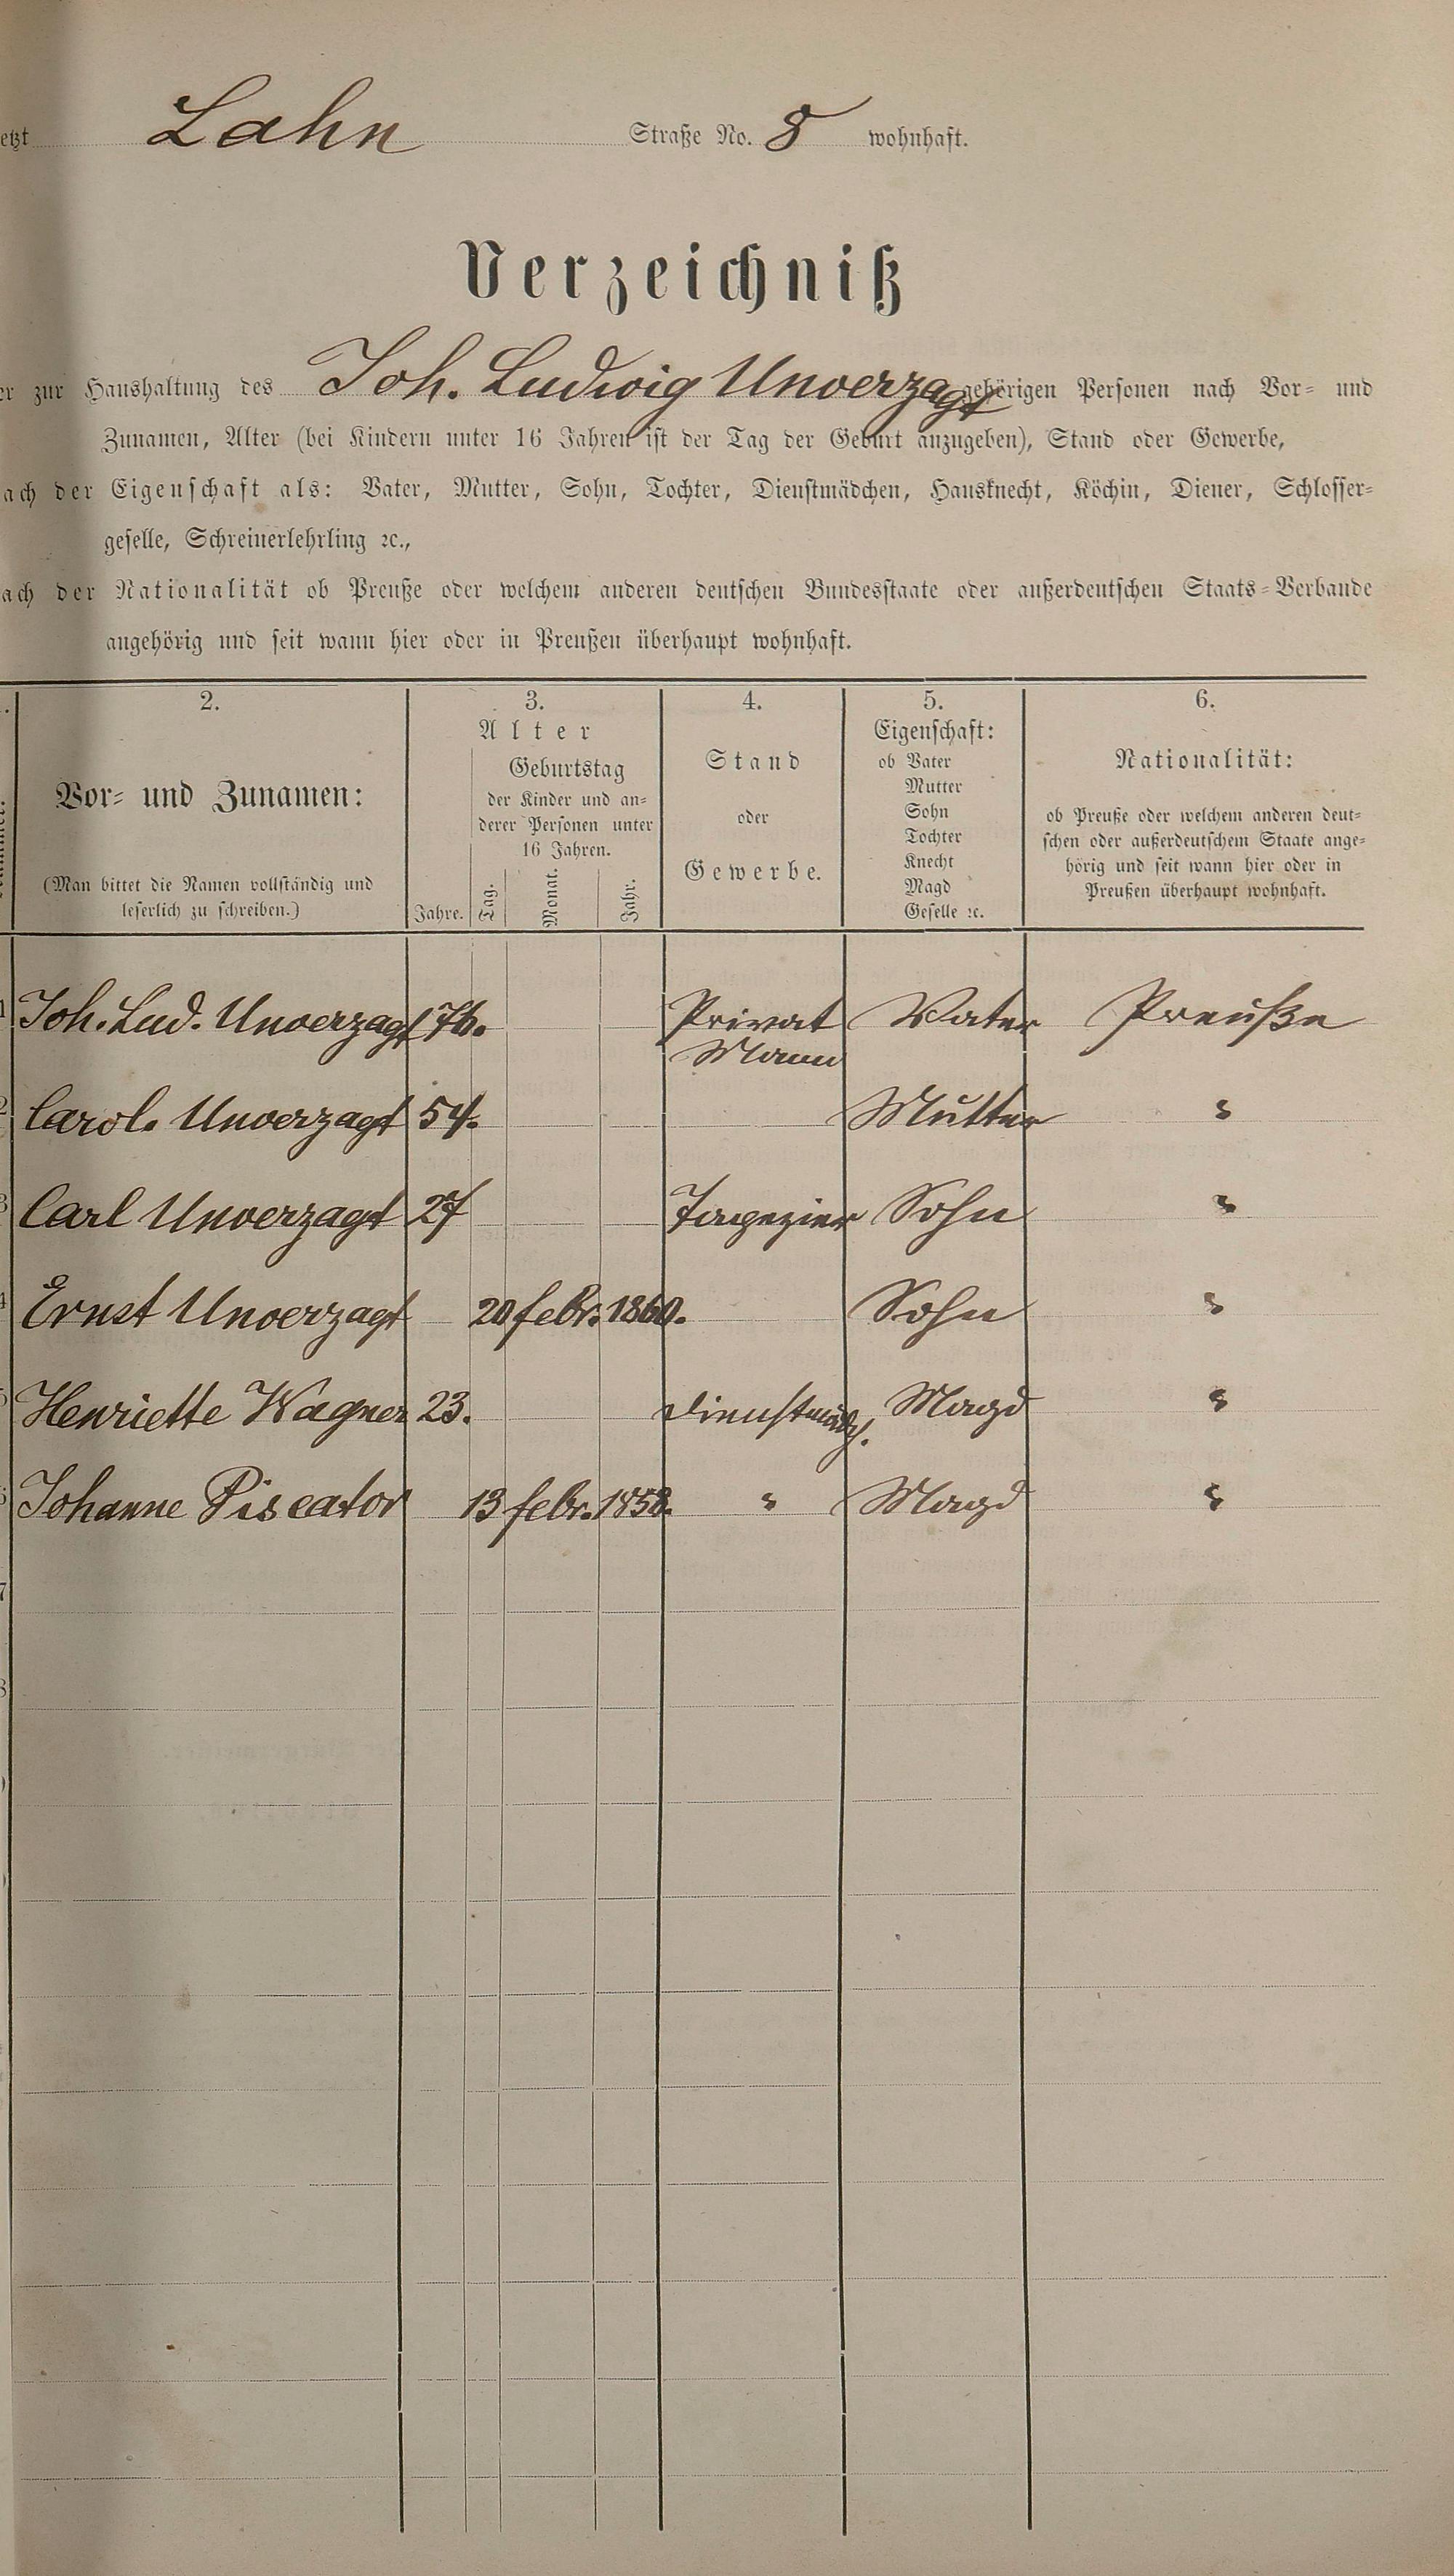 etzt Lahn Straße No. 8 wohnhaft.
Verzeichniß
er zur Haushaltung des Joh. Ludwig Unverzagt gehörigen Personen nach Vor- und
Zunamen, Alter (bei Kindern unter 16 Jahren ist der Tag der Geburt anzugeben), Stand oder Gewerbe,
ach der Eigenschaft als: Vater, Mutter, Sohn, Tochter, Dienstmädchen, Hausknecht, Köchin, Diener, Schlosser-
geselle, Schreinerlehrling ꝛc.,
ach der Nationalität ob Preuße oder welchem anderen deutschen Bundesstaate oder außerdeutschen Staats-Verbande
angehörig und seit wann hier oder in Preußen überhaupt wohnhaft.
2.
Vor- und Zunamen:
(Man bittet die Namen vollständig und
leserlich zu schreiben.)
3.
Alter
Jahre.
Geburtstag
der Kinder und an-
derer Personen unter
16 Jahren.
Tag.
Monat.
Jahr.
4.
Stand
oder
Gewerbe.
5.
Eigenschaft:
ob Vater
Mutter
Sohn
Tochter
Knecht
Magd
Geselle ꝛc.
6.
Nationalität:
ob Preuße oder welchem anderen deut-
schen oder außerdeutschem Staate ange-
hörig und seit wann hier oder in
Preußen überhaupt wohnhaft.
1 Joh. Lud. Unverzagt 76. Privat Vater Preuße
Mann
2 Carol. Unverzagt 54. Mutter "
3 Carl Unverzagt 27 Tapezier Sohn "
4 Ernst Unverzagt 20 febr. 1860. Sohn "
5 Henriette Wagner 23. Dienstmädch. Magd "
6 Johanne Piscator 13 febr. 1858. " Magd "
7
8